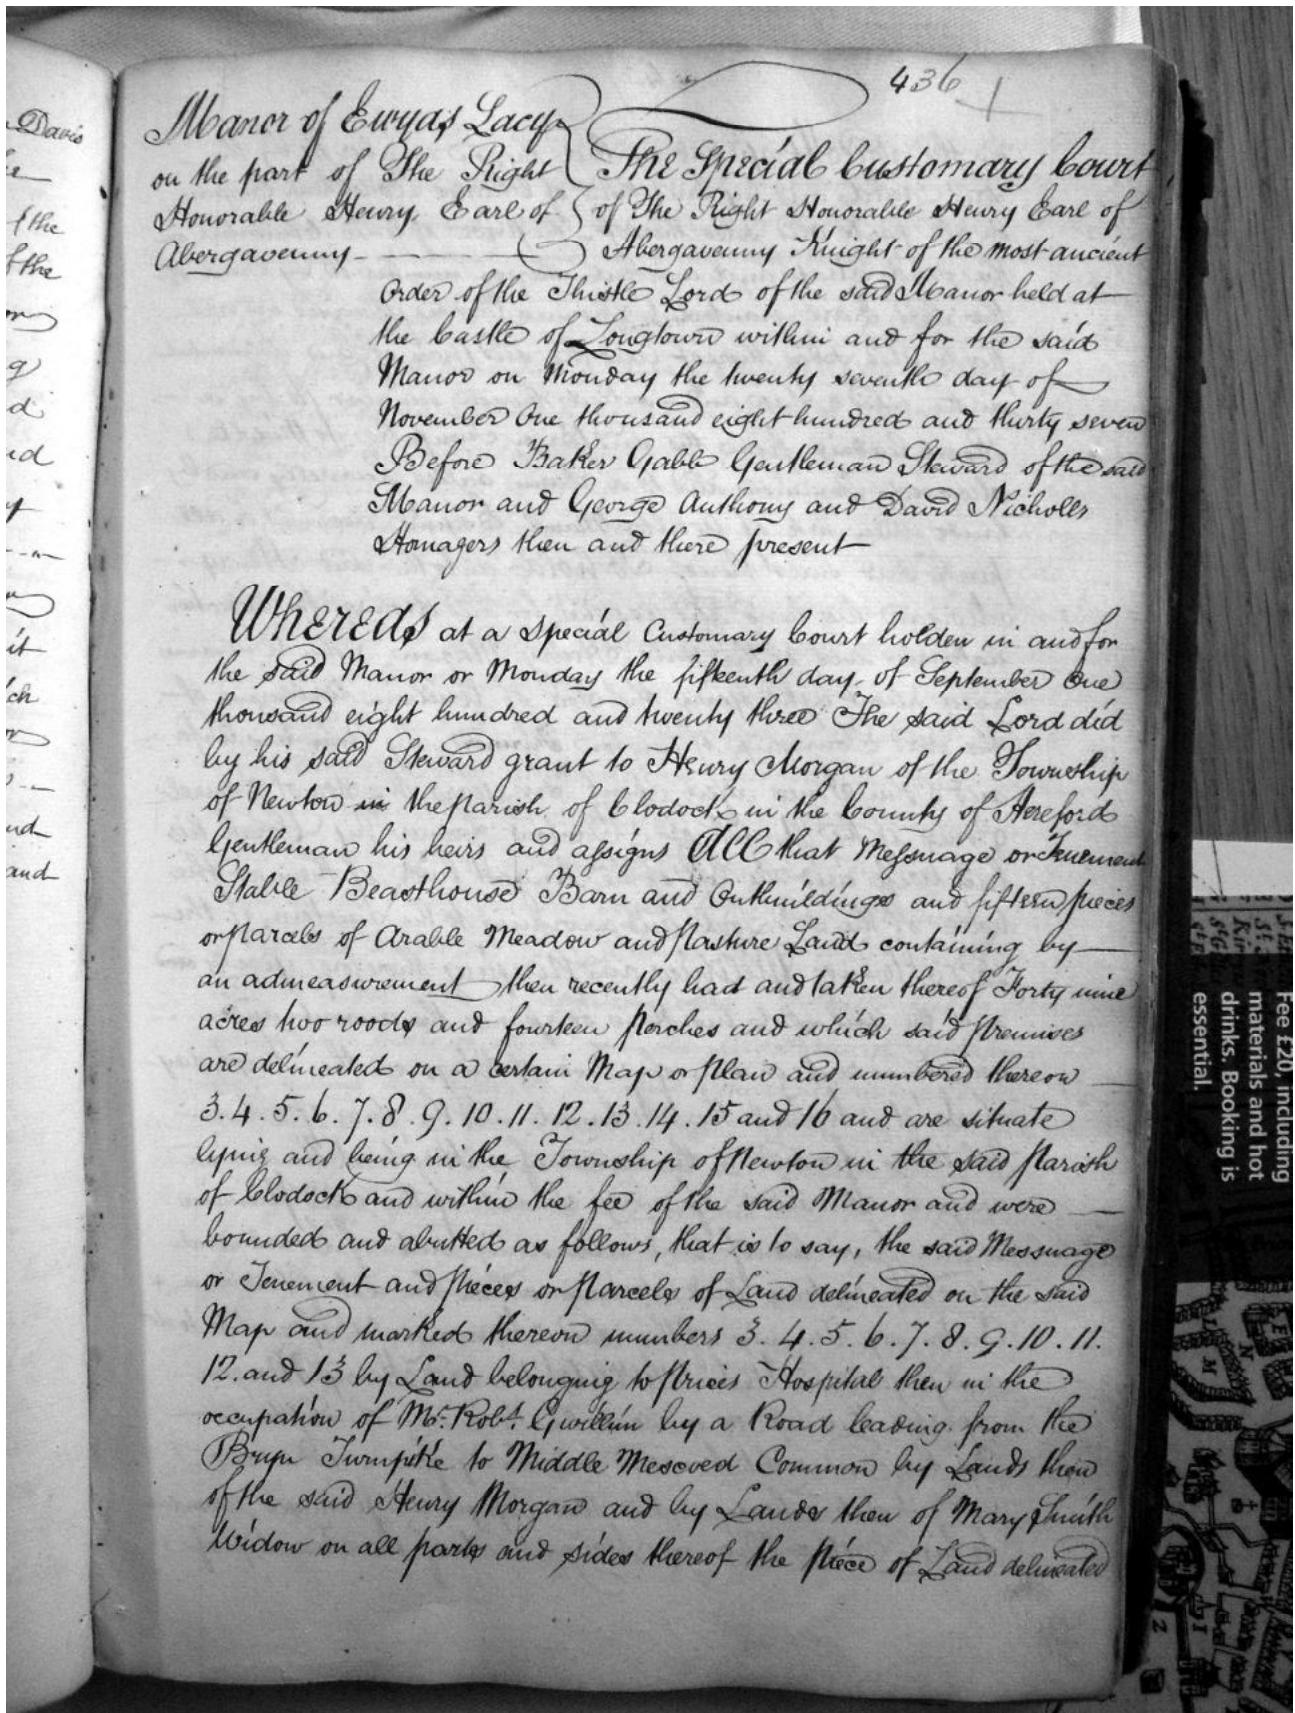 436
Manor of Ewyas Lacy
on the part of The Right
Honorable Henry Earl of
Abergavenny
The Special Customary Court
of The Right Honorable Henry Earl of
Abergavenny Knight of the most ancient
Order of the Thistle Lord of the said Manor held at
the Castle of Longtown within and for the said
Manor on Monday the twenty seventh day of
November One thousand eight hundred and thirty seven
Before Baker Gabb Gentleman Steward of the said
Manor and George Anthony and David Nicholls
Homagers then and there present
Whereas at a Special Customary Court holden in and for
the said Manor or Monday the fifteenth day of September One
thousand eight hundred and twenty three The said Lord did
by his said Steward grant to Henry Morgan of the Township
of Newton in the Parish of Clodock in the County of Hereford
Gentleman his heirs and assigns All that Messuage or Tenement
Stable Beasthouse Barn and Outbuildings and fifteen pieces
or Parcels of Arable Meadow and Pasture Land containing by
an admeasurement then recently had and taken thereof Forty nine
acres two roods and fourteen perches and which said Premises
are delineated on a certain Map or Plan and numbered thereon
3.4.5.6.7.8.9.10.11.12.13.14.15 and 16 and are situate
lying and being in the Township of Newton in the said Parish
of Clodock and within the fee of the said Manor and were
bounded and abutted as follows, that is to say, the said Messuage
or Tenement and Pieces or Parcels of Land delineated on the said
Map and marked thereon numbers 3.4.5.6.7.8.9.10.11.
12. and 13 by Land belonging to Prices Hospital then in the
occupation of Mr. Robt. Gwillim by a Road leading from the
Bryn Turnpike to Middle Mescoed Common by Lands then
of the said Henry Morgan and by Lands then of Mary Smith
Widow on all parts and sides thereof the Piece of Land delineated
Davis
the
f the
and
Fee £20, including
materials and hot
drinks. Booking is
essential.